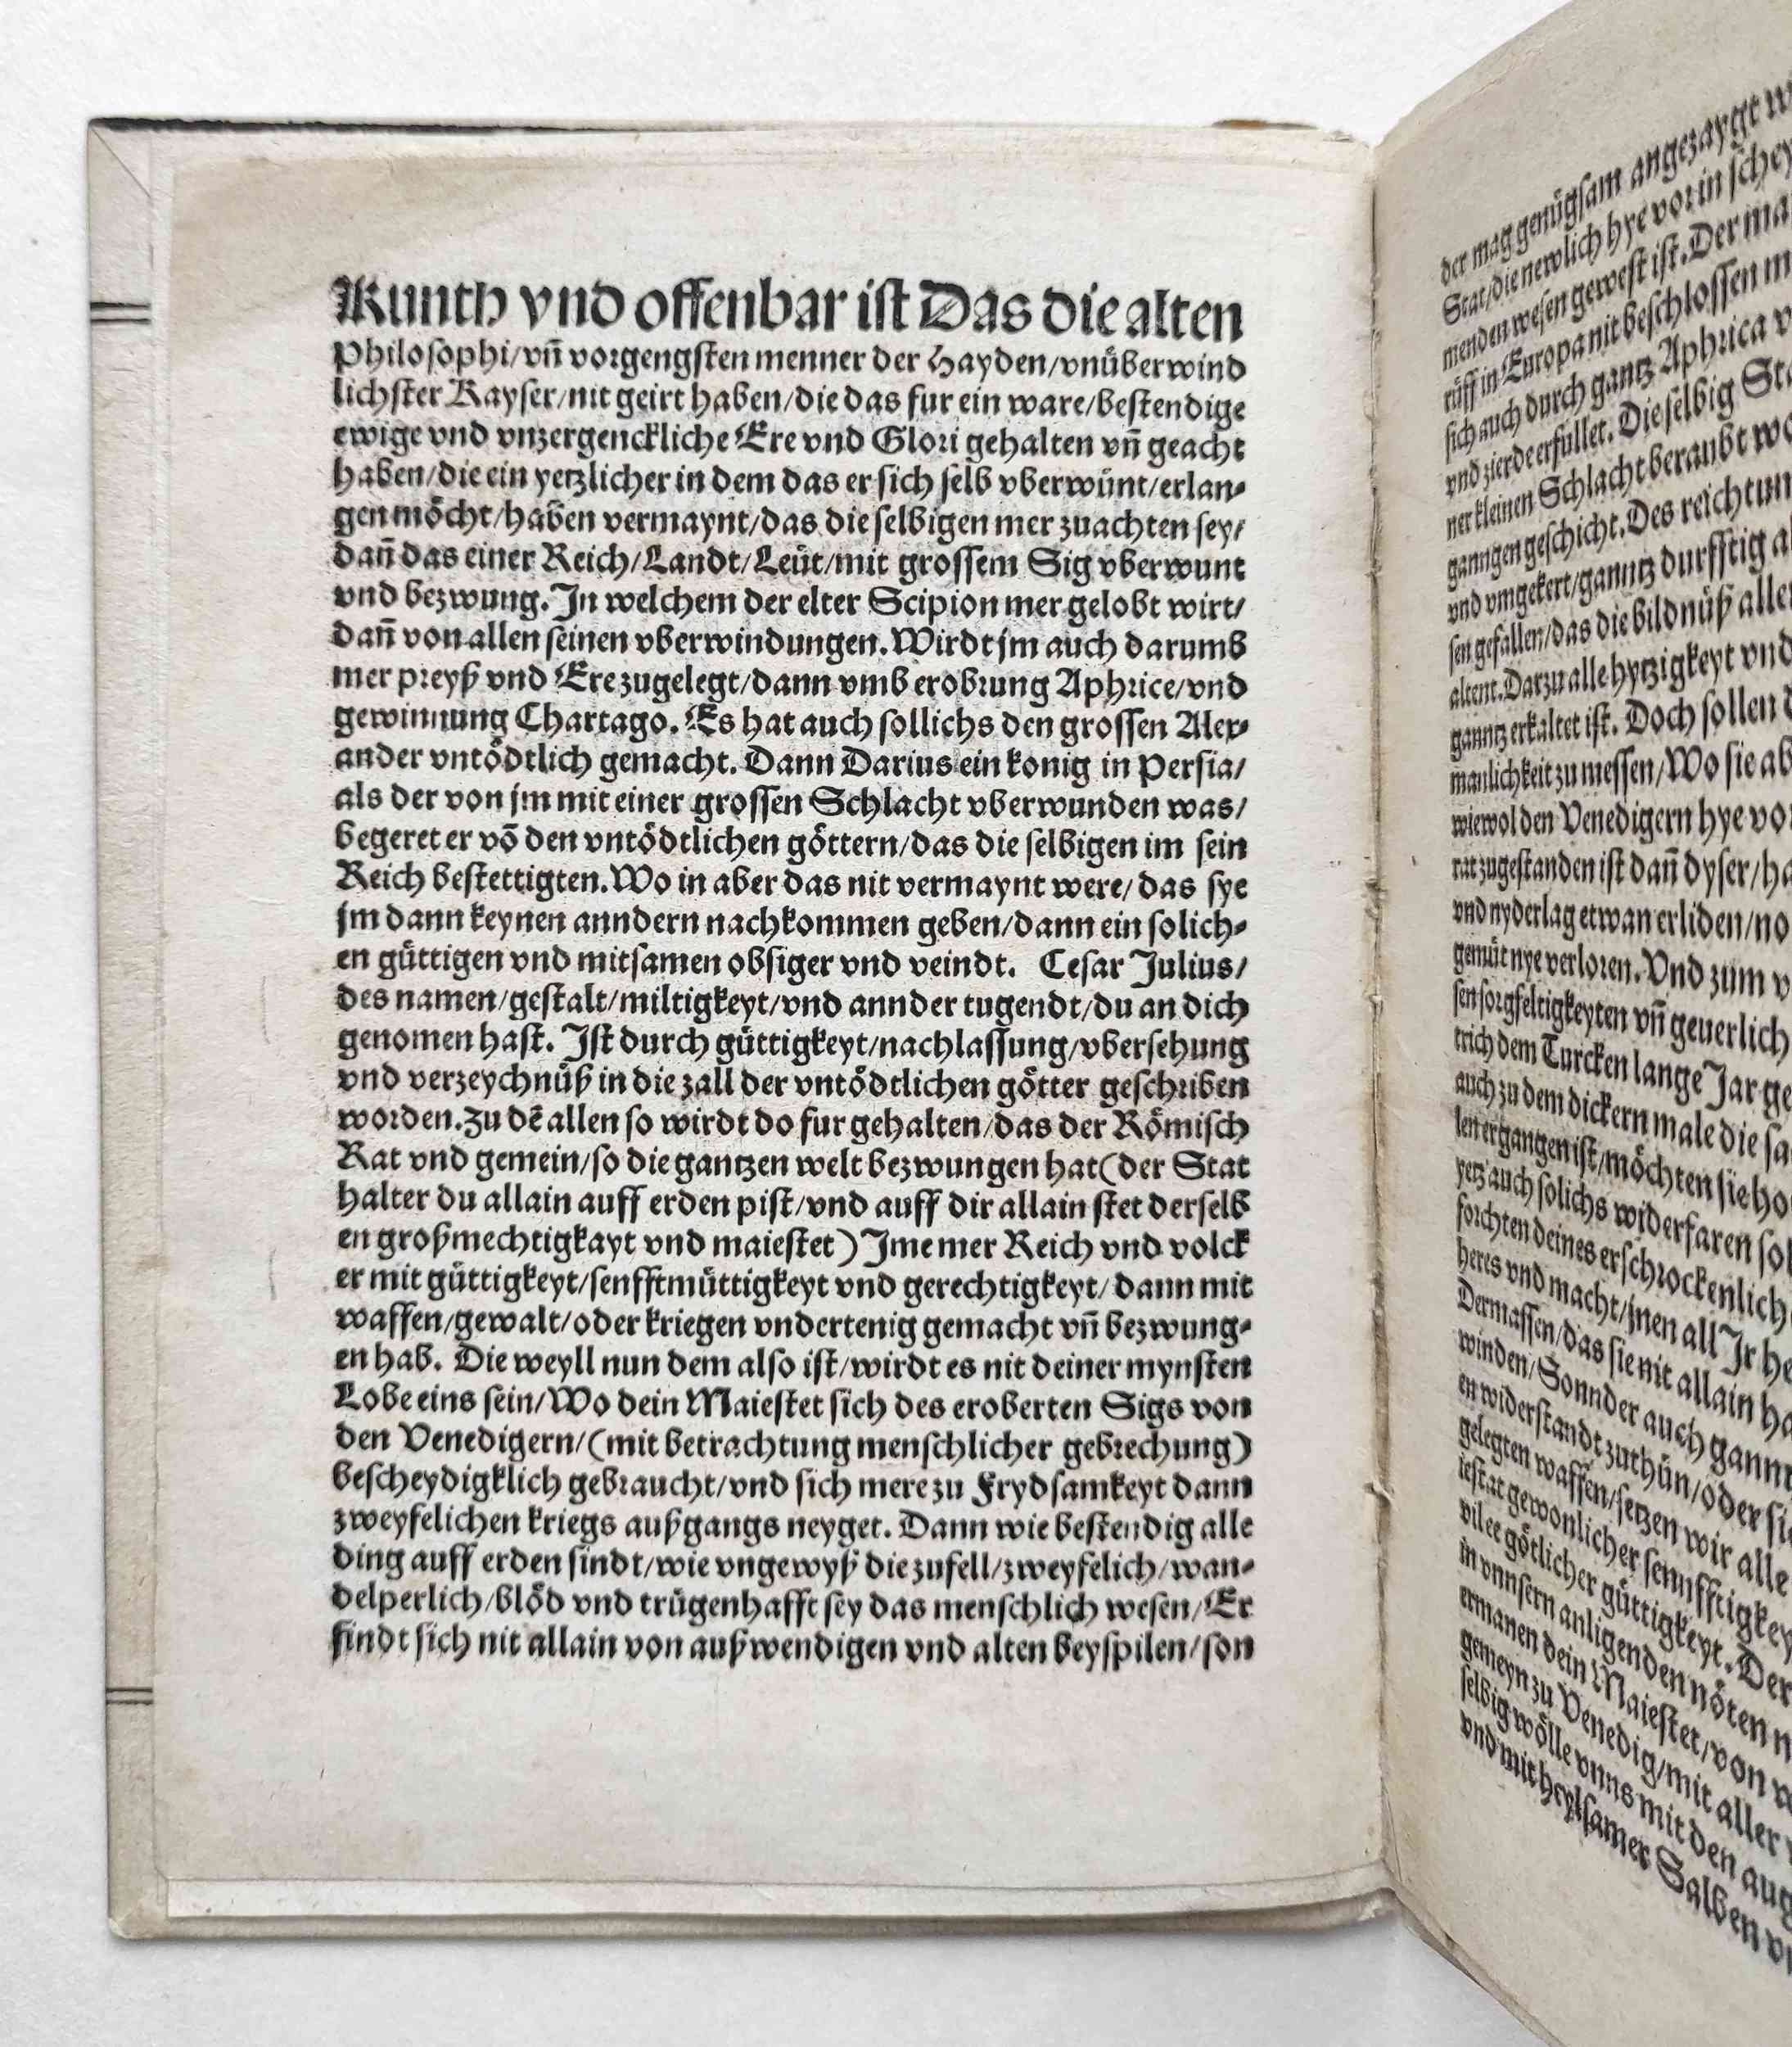 Kunth vnd offenbar ist Das die alten
Philosophi/vñ vorgengsten menner der Hayden/vnüberwind
lichster Kayser/nit geirt haben/die das fur ein ware/bestendige
ewige vnd vnzergenckliche Ere vnd Glori gehalten vñ geacht
haben/die ein yetzlicher in dem das er sich selb vberwünt/erlan-
gen möcht/haben vermaynt/das die selbigen mer zuachten sey/
dañ das einer Reich/Landt/Leüt/mit grossem Sig vberwunt
vnd bezwung. In welchem der elter Scipion mer gelobt wirt/
dañ von allen seinen vberwindungen. Wirdt jm auch darumb
mer preyß vnd Ere zugelegt/dann vmb erobrung Aphrice/vnd
gewinnung Chartago. Es hat auch sollichs den grossen Alex-
ander vntödtlich gemacht. Dann Darius ein konig in Persia/
als der von jm mit einer grossen Schlacht vberwunden was/
begeret er võ den vntödtlichen göttern/das die selbigen im sein
Reich bestettigten. Wo in aber das nit vermaynt were/das sye
jm dann keynen anndern nachkommen geben/dann ein solich-
en güttigen vnd mitsamen obsiger vnd veindt. Cesar Julius/
des namen/gestalt/miltigkeyt/vnd annder tugendt/du an dich
genomen hast. Ist durch güttigkeyt/nachlassung/vbersehung
vnd verzeychnüß in die zall der vntödtlichen götter geschriben
worden. Zu dẽ allen so wirdt do fur gehalten/das der Römisch
Rat vnd gemein/so die gantzen welt bezwungen hat(der Stat
halter du allain auff erden pist/vnd auff dir allain stet derselb
en großmechtigkayt vnd maiestet) Ime mer Reich vnd volck
er mit güttigkeyt/senfftmüttigkeyt vnd gerechtigkeyt/dann mit
waffen/gewalt/oder kriegen vndertenig gemacht vñ bezwung-
en hab. Die weyll nun dem also ist/wirdt es nit deiner mynsten
Lobe eins sein/Wo dein Maiestet sich des eroberten Sigs von
den Venedigern/(mit betrachtung menschlicher gebrechung)
bescheydigklich gebraucht/vnd sich mere zu Frydsamkeyt dann
zweyfelichen kriegs außgangs neyget. Dann wie bestendig alle
ding auff erden sindt/wie vngewyß die zufell/zweyfelich/wan-
delperlich/blöd vnd trügenhafft sey das menschlich wesen/Er
findt sich nit allain von außwendigen vnd alten beyspilen/son
der mag genügsam angezaygt
Stat/die newlich hye vor in
menden wesen gewest ist. Der
rüff in Europa nit beschlossen
sich auch durch gantz Aphrica
vnd zierde erfullet. Die selbig
ner kleinen Schlacht beraubt
ganngen geschicht. Des
vnd vmgekert/ganntz durfftig
sen gefallen/das die bildnüß
altent. Darzu alle hytzigkeyt vnd
ganntz erkaltet ist. Doch sollen
manlichkeit zu messen/Wo sie
wiewol den Venedigern hye
rat zugestanden ist dañ dyser/
vnd nyderlag etwan erliden/
gemüt nye verloren. Vnd zum
sen sorgfeltigkeyten vñ geuerlich
trich dem Turcken lange Jar
auch zu dem dickern male die
len ergangen ist/möchten sie
yetz auch solichs widerfaren
forchten deines erschrockenlich
heres vnd macht/jnen all Jr
Dermassen/das sie nit allain
winden/Sonnder auch
en widerstandt zuthün/oder
gelegten waffen/setzen wir alle
iestat gewonlicher
viler götlicher güttigkeyt. Der
in vnnsern anligenden nöten
ermanen dein Maiestet/von
gemeyn zu Venedig/mit aller
selbig wölle vnns mit den
vnd mit heylsamer Salben